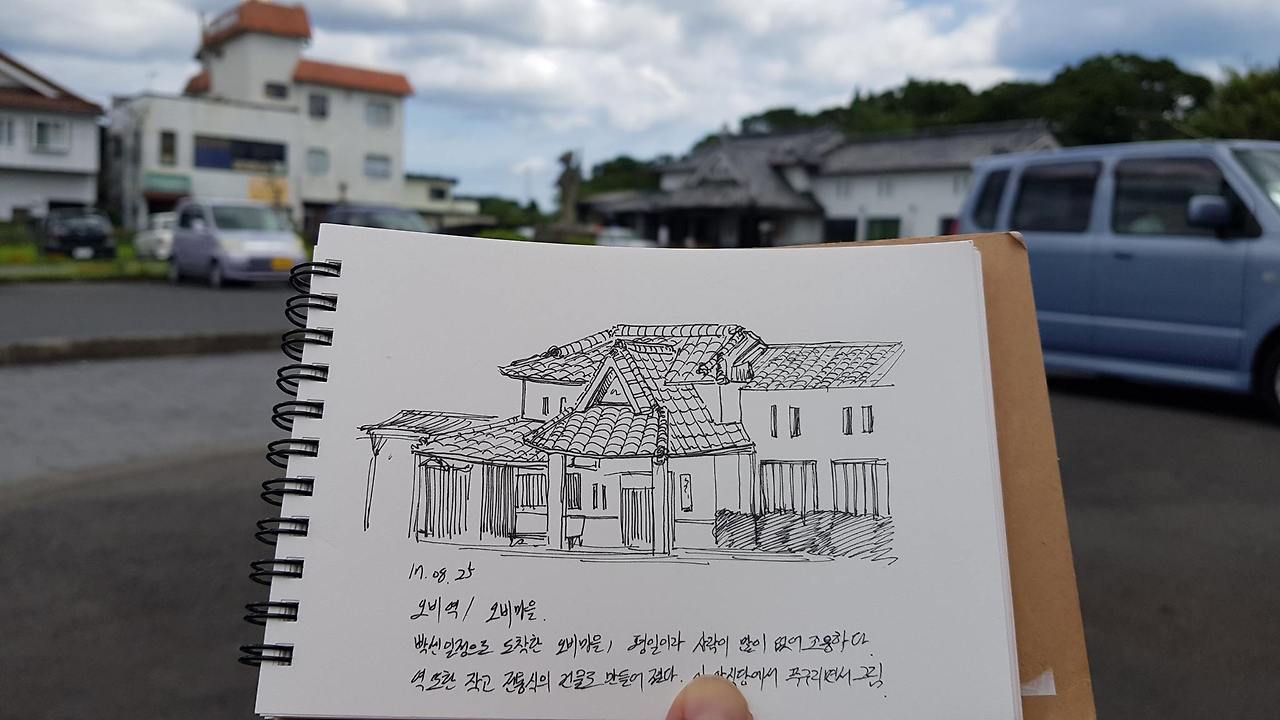 17. 08. 25
오비역 / 오비마을.
일정으로 도착한 오비마을, 평일이라 사람이 많이 없어 조용하다.
역 또한 작고 전통식의 건물로 만들어 졌다. 쭈구리면서 그림.